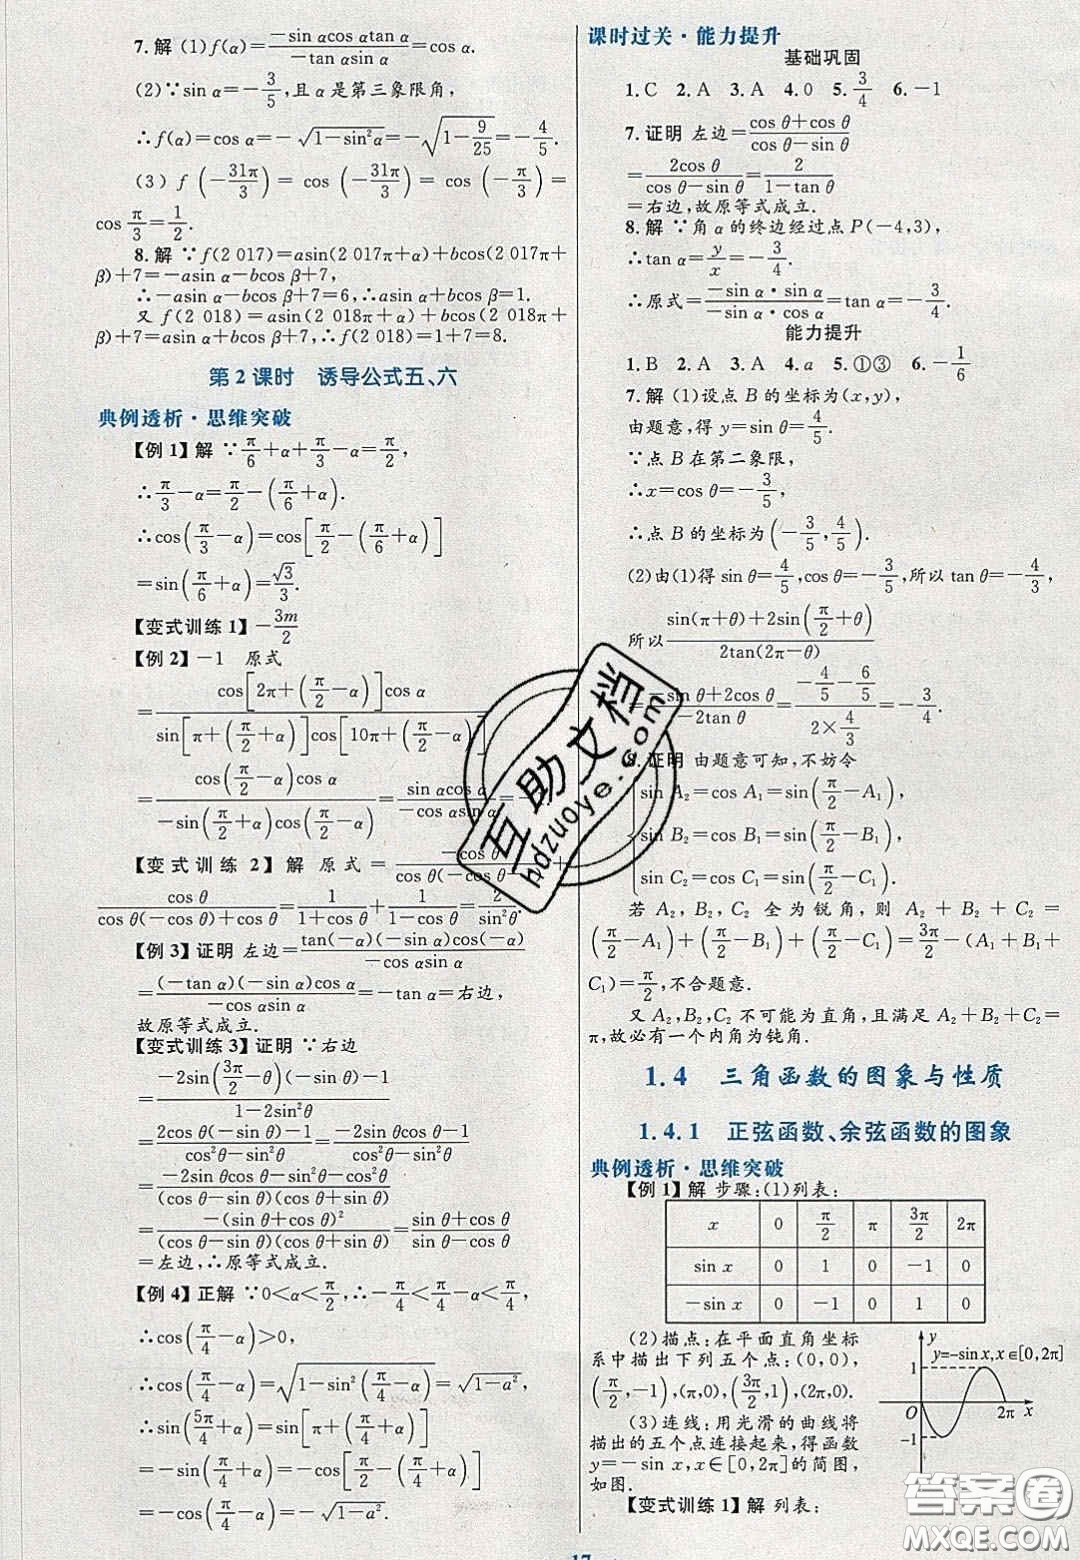 7.解 (1)f(α)=(-sin αcos αtan α)/(-tan αsin α)=cos α.
(2)∵sin α=-3/5,且α是第三象限角,
∴f(α)=cos α=-√(1-sin²α)=-√(1-9/25)=-4/5.
(3) f(-31π/3)=cos(-31π/3)=cos(-π/3)=
cos π/3=1/2.
8.解 ∵f(2 017)=asin(2 017π+α)+bcos(2 017π+
β)+7=-asin α-bcos β+7,
∴-asin α-bcos β+7=6,∴asin α+bcos β=1.
又 f(2 018)=asin(2 018π+α)+bcos(2 018π+
β)+7=asin α+bcos β+7,∴f(2 018)=1+7=8.
第2课时 诱导公式五、六
典例透析·思维突破
【例1】解 ∵π/6+α+π/3-α=π/2,
∴π/3-α=π/2-(π/6+α).
∴cos(π/3-α)=cos[π/2-(π/6+α)]
=sin(π/6+α)=√3/3.
【变式训练1】-3m/2
【例2】-1 原式
=cos[2π+(π/2-α)]cos α/sin[π+(π/2+α)]cos[10π+(π/2-α)]
=cos(π/2-α)cos α/-sin(π/2+α)cos(π/2-α)=sin αcos α/-cos αsin α=
【变式训练2】解 原式=-cos θ/cos θ(-cos θ-1)+
cos θ/cos θ(-cos θ)+cos θ=1/1+cos θ+1/1-cos θ=2/sin²θ.
【例3】证明 左边=tan(-α)(-sin α)cos(-α)/-cos αsin α
=(-tan α)(-sin α)cos α/-cos αsin α=-tan α=右边,
故原等式成立.
【变式训练3】证明 ∵右边
=-2sin(3π/2-θ)(-sin θ)-1/1-2sin²θ
=2cos θ(-sin θ)-1/cos²θ-sin²θ=-2sin θcos θ-1/cos²θ-sin²θ
=-2sin θcos θ-sin²θ-cos²θ/(cos θ-sin θ)(cos θ+sin θ)
=-(sin θ+cos θ)²/(cos θ-sin θ)(cos θ+sin θ)=sin θ+cos θ/sin θ-cos θ
=左边,∴原等式成立.
【例4】正解 ∵0<α<π/2,∴-π/4<π/4-α<π/4,
∴cos(π/4-α)>0,
∴cos(π/4-α)=√(1-sin²(π/4-α))=√(1-a²),
∴sin(5π/4+α)=sin[π+(π/4+α)]
=-sin(π/4+α)=-cos[π/2-(π/4+α)]
=-cos(π/4-α)=-√(1-a²).
课时过关·能力提升
基础巩固
1.C 2.A 3.A 4.0 5.3/4 6.-1
7.证明 左边=cos θ+cos θ/cos θ-sin θ
=2cos θ/cos θ-sin θ=2/1-tan θ
=右边,故原等式成立.
8.解 ∵角α的终边经过点P(-4,3),
∴tan α=y/x=-3/4.
∴原式=-sin α·sin α/-sin α·cos α=tan α=-3/4.
能力提升
1.B 2.A 3.A 4.a 5.①③ 6.-1/6
7.解 (1)设点B的坐标为(x,y),
由题意,得 y=sin θ=4/5.
∵点B在第二象限,
∴x=cos θ=-3/5,
∴点B的坐标为(-3/5,4/5).
(2)由(1)得 sin θ=4/5,cos θ=-3/5,所以 tan θ=-4/3,
所以 sin(π+θ)+2sin(π/2+θ)/2tan(2π-θ)
=-sin θ+2cos θ/-2tan θ=(-4/5-6/5)/(2×4/3)=-3/4.
8.证明 由题意可知,不妨令
sin A₂=cos A₁=sin(π/2-A₁),
sin B₂=cos B₁=sin(π/2-B₁),
sin C₂=cos C₁=sin(π/2-C₁).
若 A₂,B₂,C₂ 全为锐角,则 A₂+B₂+C₂=
(π/2-A₁)+(π/2-B₁)+(π/2-C₁)=3π/2-(A₁+B₁+
C₁)=π/2,不合题意.
又 A₂,B₂,C₂ 不可能为直角,且满足 A₂+B₂+C₂=
π,故必有一个内角为钝角.
1.4 三角函数的图象与性质
1.4.1 正弦函数、余弦函数的图象
典例透析·思维突破
【例1】解 步骤:(1)列表:
x 0 π/2 π 3π/2 2π
sin x 0 1 0 -1 0
-sin x 0 -1 0 1 0
(2)描点:在平面直角坐标
系中描出下列五个点:(0,0),
(π/2,-1),(π,0),(3π/2,1),(2π,0).
(3)连线:用光滑的曲线将
描出的五个点连接起来,得函数
y=-sin x,x∈[0,2π]的简图,
如图.
y
y=-sin x,x∈[0,2π]
1
O 2π x
-1
【变式训练1】解 列表:
17
互助文档
hdzuoye.com
答案圈
MXQE.COM